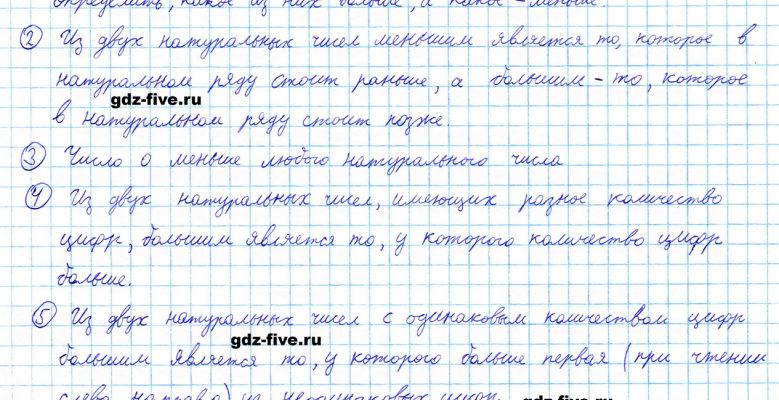 определить, какое из них больше, а какое - меньше.
② Из двух натуральных чисел меньшим является то, которое в
натуральном ряду стоит раньше, а большим - то, которое
gdz-five.ru
в натуральном ряду стоит позже.
③ Число 0 меньше любого натурального числа
④ Из двух натуральных чисел, имеющих разное количество
цифр, большим является то, у которого количество цифр
больше.
⑤ Из двух натуральных чисел с одинаковым количеством цифр
gdz-five.ru
большим является то, у которого больше первая (при чтении
слева направо) из неодинаковых цифр.
gdz-five.ru